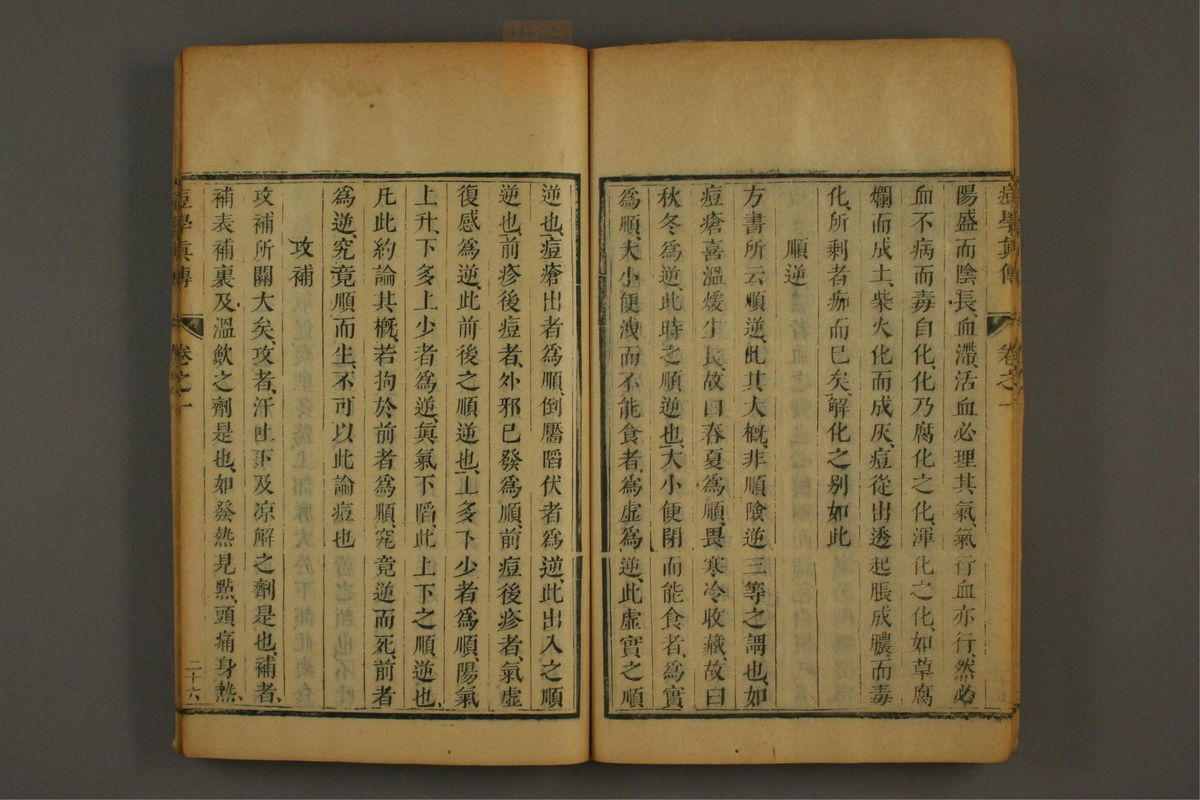 痘學眞傳 卷之一
陽盛而陰長血滯活血必理其氣氣行血亦行然必
血不病而毒自化、化乃腐化之化、渾化之化、如草腐
爛而成土、柴火化而成灰、痘從出透起脹成膿而毒
化、所剩者痂而已矣、解化之別如此
順逆
方書所云順逆、此其大概、非順險逆三等之謂也、如
痘瘡喜溫煖生長、故曰春夏爲順、畏寒冷收藏故曰
秋冬爲逆、此時之順逆也、大小便閉而能食者、爲實
爲順、大小便洩而不能食者、爲虛爲逆、此虛實之順
逆也、痘瘡出者爲順、倒靨陷伏者爲逆、此出入之順
逆也、前疹後痘者、外邪已發爲順、前痘後疹者、氣虛
復感爲逆、此前後之順逆也、上多下少者爲順、陽氣
上升、下多上少者爲逆、眞氣下陷、此上下之順逆也、
凡此約論其概、若拘於前者爲順、究竟逆而死、前者
爲逆、究竟順而生、不可以此論痘也
攻補
攻補所關大矣、攻者、汗吐下及凉解之劑是也、補者、
補表補裏及溫飲之劑是也、如發熱見點、頭痛身熱、
痘學眞傳 卷之一 二十六